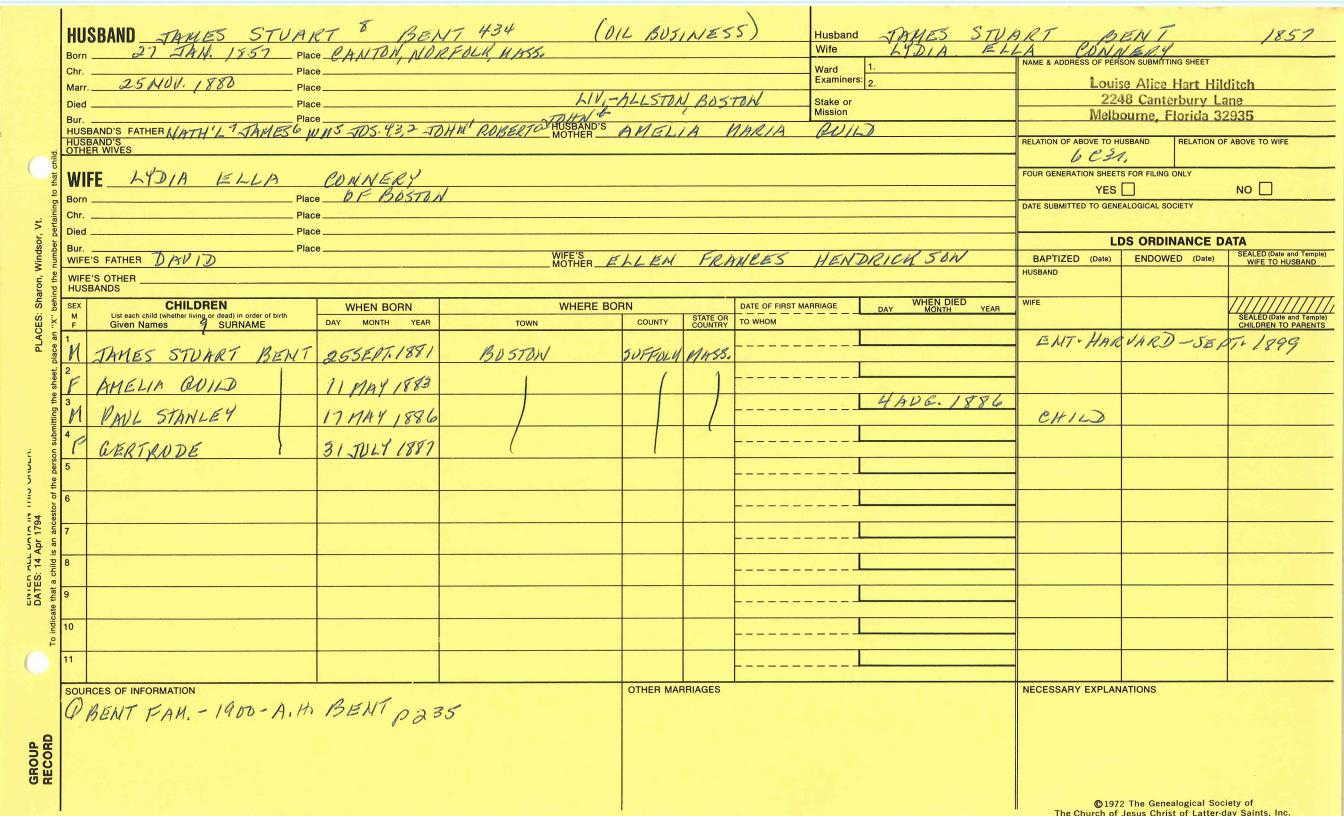 HUSBAND JAMES STUART 8 BENT 434 (OIL BUSINESS)
Born 27 JAN. 1857 Place CANTON, NORFOLK, MASS.
Chr. Place
Marr. 25 NOV. 1880 Place
Died Place LIV.-ALLSTON, BOSTON
Bur. Place
HUSBAND'S FATHER NATH'L 7 JAMES 6 WM 5 JOS. 4,3,2 JOHN 1 ROBERT JOHN HUSBAND'S MOTHER AMELIA MARIA GUILD
HUSBAND'S OTHER WIVES
WIFE LYDIA ELLA CONNERY
Born Place OF BOSTON
Chr. Place
Died Place
Bur. Place
WIFE'S FATHER DAVID WIFE'S MOTHER ELLEN FRANCES HENDRICKSON
WIFE'S OTHER HUSBANDS
Husband JAMES STUART BENT 1857
Wife LYDIA ELLA CONNERY
Ward Examiners: 1.
2.
Stake or Mission
NAME & ADDRESS OF PERSON SUBMITTING SHEET
Louise Alice Hart Hilditch
2248 Canterbury Lane
Melbourne, Florida 32935
RELATION OF ABOVE TO HUSBAND RELATION OF ABOVE TO WIFE
6 C 3r.
FOUR GENERATION SHEETS FOR FILING ONLY
YES NO
DATE SUBMITTED TO GENEALOGICAL SOCIETY
LDS ORDINANCE DATA
BAPTIZED (Date) ENDOWED (Date) SEALED (Date and Temple) WIFE TO HUSBAND
HUSBAND
WIFE
SEALED (Date and Temple) CHILDREN TO PARENTS
SEX M F
CHILDREN
List each child (whether living or dead) in order of birth
Given Names 9 SURNAME
WHEN BORN
DAY MONTH YEAR
WHERE BORN
TOWN COUNTY STATE OR COUNTRY
DATE OF FIRST MARRIAGE
TO WHOM
WHEN DIED
DAY MONTH YEAR
1 M JAMES STUART BENT 25 SEPT. 1881 BOSTON SUFFOLK MASS. ENT. HARVARD - SEPT. 1899
2 F AMELIA GUILD 11 MAY 1883
3 M PAUL STANLEY 17 MAY 1886 4 AUG. 1886 CHILD
4 F GERTRUDE 31 JULY 1887
5
6
7
8
9
10
11
SOURCES OF INFORMATION
① BENT FAM. - 1900 - A.H. BENT p235
OTHER MARRIAGES
NECESSARY EXPLANATIONS
©1972 The Genealogical Society of
The Church of Jesus Christ of Latter-day Saints, Inc.
PLACES: Sharon, Windsor, Vt.
DATES: 14 Apr 1794
To indicate that a child is an ancestor of the person submitting the sheet, place an "X" behind the number pertaining to that child.
GROUP RECORD